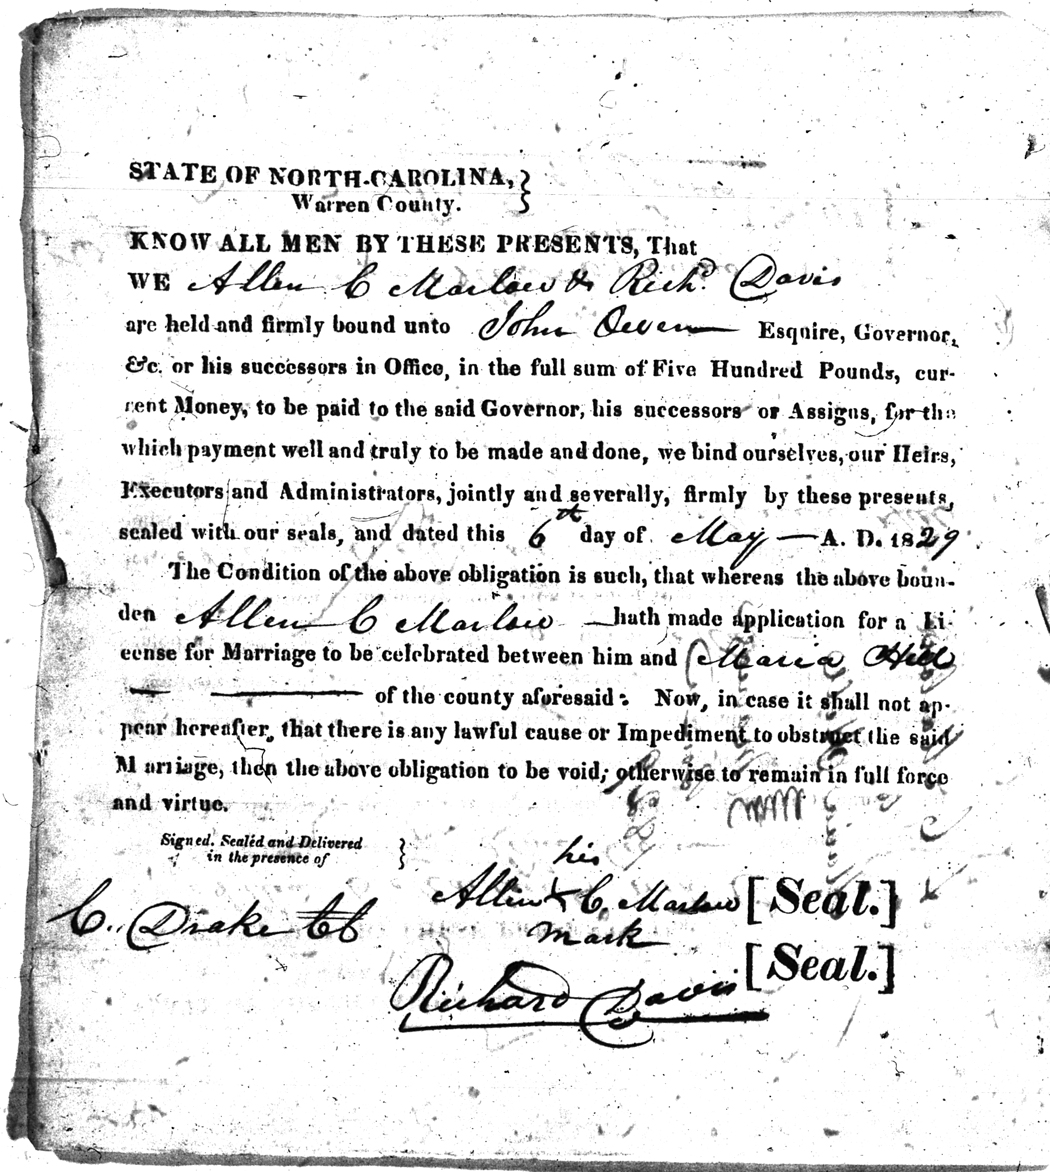 STATE OF NORTH-CAROLINA, }
Warren County.
KNOW ALL MEN BY THESE PRESENTS, That
WE Allen C Marlow & Richd. Davis
are held and firmly bound unto John Owen — Esquire, Governor,
&c. or his successors in Office, in the full sum of Five Hundred Pounds, cur-
rent Money, to be paid to the said Governor, his successors or Assigns, for the
which payment well and truly to be made and done, we bind ourselves, our Heirs,
Executors and Administrators, jointly and severally, firmly by these presents,
sealed with our seals, and dated this 6th day of May — A. D. 1829
The Condition of the above obligation is such, that whereas the above boun-
den Allen C Marlow — hath made application for a Li-
cense for Marriage to be celebrated between him and Maria Hill
— — of the county aforesaid: Now, in case it shall not ap-
pear hereafter, that there is any lawful cause or Impediment to obstruct the said
Marriage, then the above obligation to be void; otherwise to remain in full force
and virtue.
Signed, Sealed and Delivered }
in the presence of
his
Allen X C. Marlow [Seal.]
C. Drake
mark
[Seal.]
Richard Davis